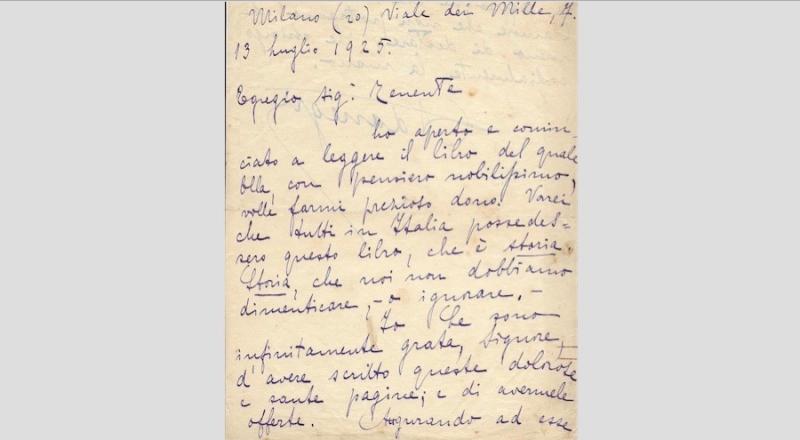 Milano (20) Viale dei Mille, 7.
13 Luglio 1925.
Egregio Sig. Tenente
ho aperto e comin-
ciato a leggere il libro del quale
Ella, con pensiero nobilissimo,
volle farmi prezioso dono. Vorrei
che tutti in Italia possedes=
sero questo libro, che è storia.
Storia, che noi non dobbiamo
dimenticare, - o ignorare. -
Io Le sono
infinitamente grata, Signore,
d'avere scritto queste dolorose
e sante pagine; e di avermele
offerte. Augurando ad esse